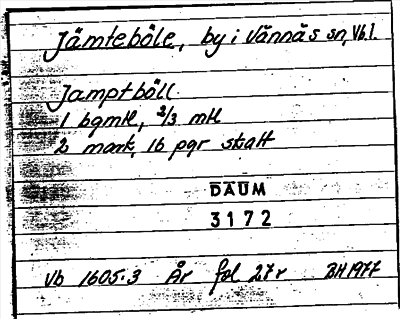 Jämteböle, by i Vännäs sn, Vb.l.
Jamptböll
1 bgmtl, 2/3 mtl
2 mark, 16 pgr skatt
DAUM
3172
Vb 1605:3 År fol 27r BH1977